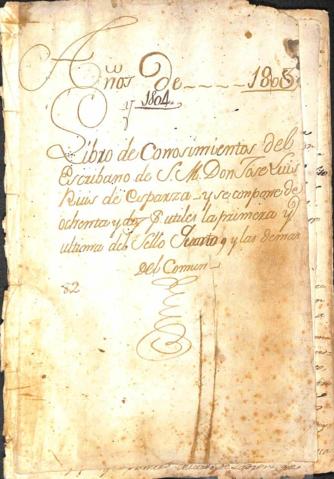 Años De 1803
y 1804
Libro de Conosimientos del
Escribano de S. M. Don Jose Luis
Rius de Esparza y se compone de
ochenta y dos utiles la primera y
ultima del Sello Quarto, y las demas
del Comun
82